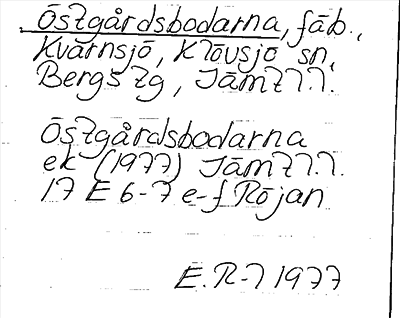 Östgårdsbodarna, fäb.,
Kvarnsjö, Klövsjö sn,
Bergs tg, Jämtl.l.
Östgårdsbodarna
ek (1977) Jämtl.l.
17 E 6-7 e-f Röjan
E.R-l 1977